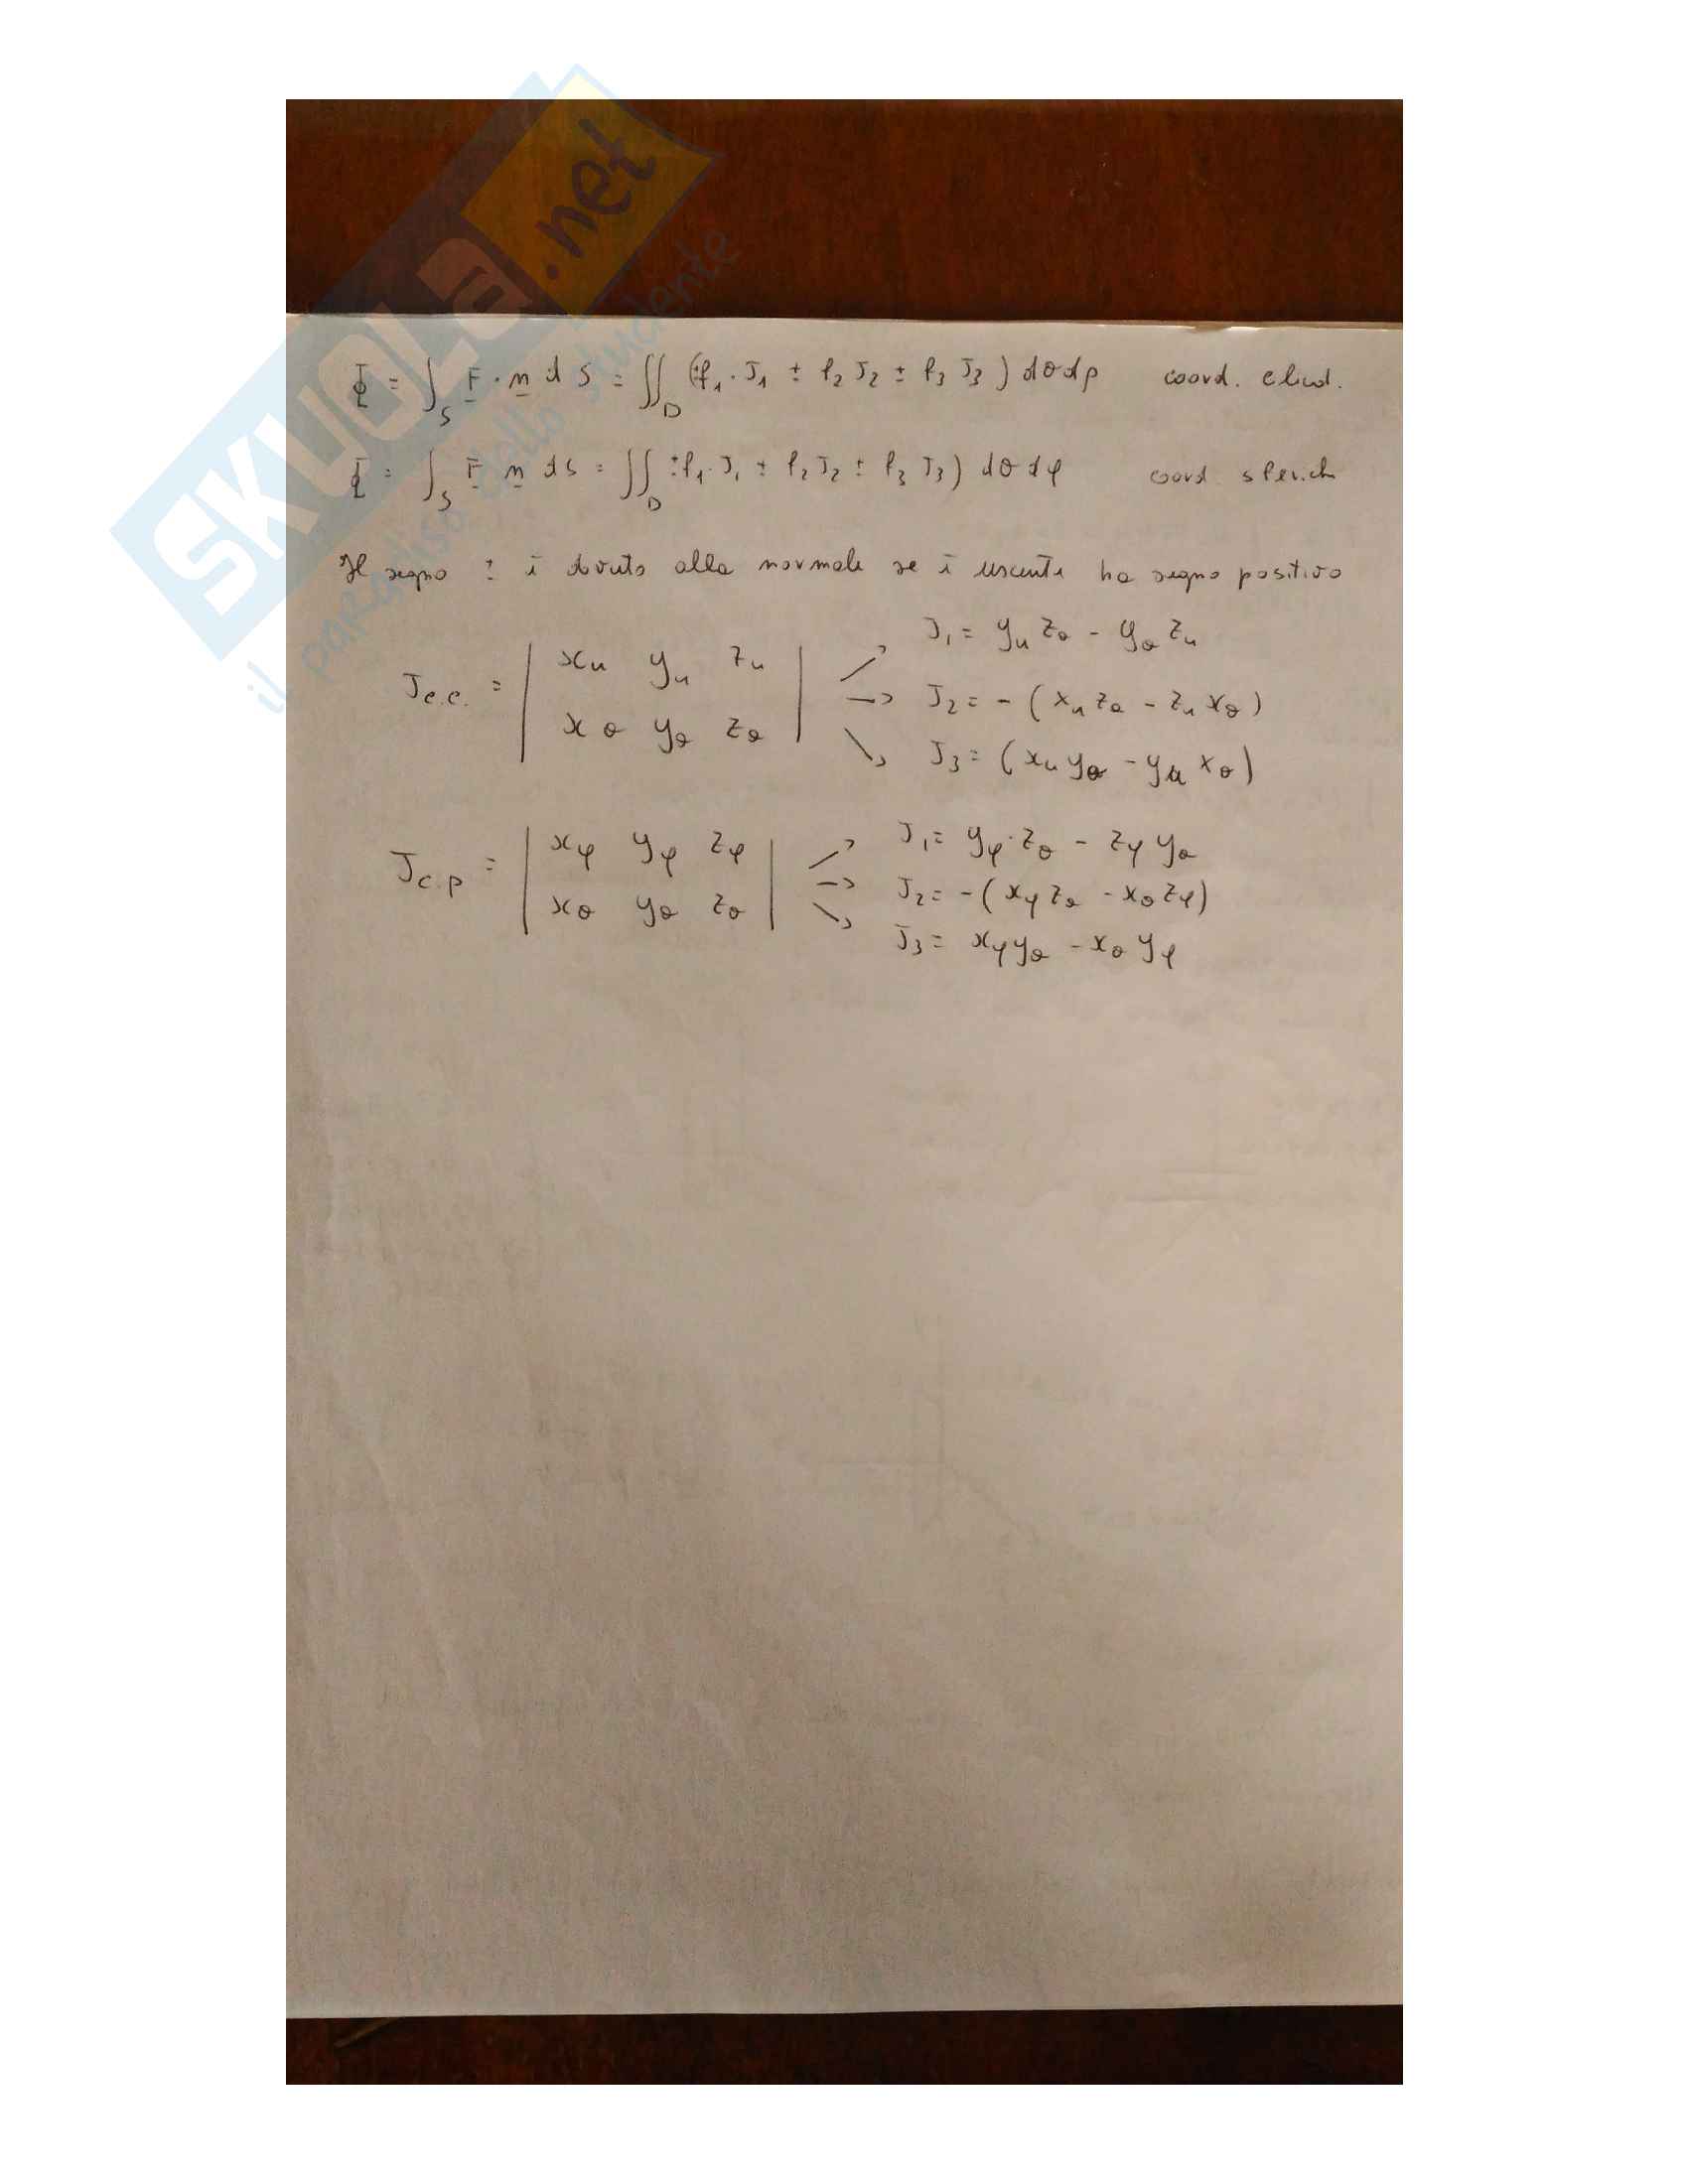 SKUOLA.net
il paradiso dello studente
Φ = ∫_S F · n d S = ∬_D (±f₁ · J₁ ± f₂ J₂ ± f₃ J₃) dθdρ coord. clind.
Φ = ∫_S F n dS = ∬_D ±f₁ · J₁ ± f₂ J₂ ± f₃ J₃) dθ dφ coord sferich
Il segno ± è dovuto alla normale se è uscente ha segno positivo
J_c.c. = | x_u y_u z_u |
| x_θ y_θ z_θ |
J₁ = y_u z_θ - y_θ z_u
J₂ = - (x_u z_θ - z_u x_θ)
J₃ = (x_u y_θ - y_u x_θ)
J_c.p = | x_φ y_φ z_φ |
| x_θ y_θ z_θ |
J₁ = y_φ · z_θ - z_φ y_θ
J₂ = -(x_φ z_θ - x_θ z_φ)
J₃ = x_φ y_θ - x_θ y_φ